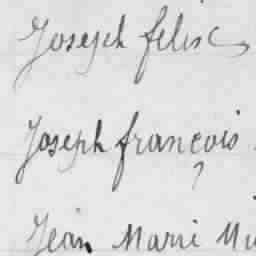 Joseph felix
Joseph françois
Jean Marie